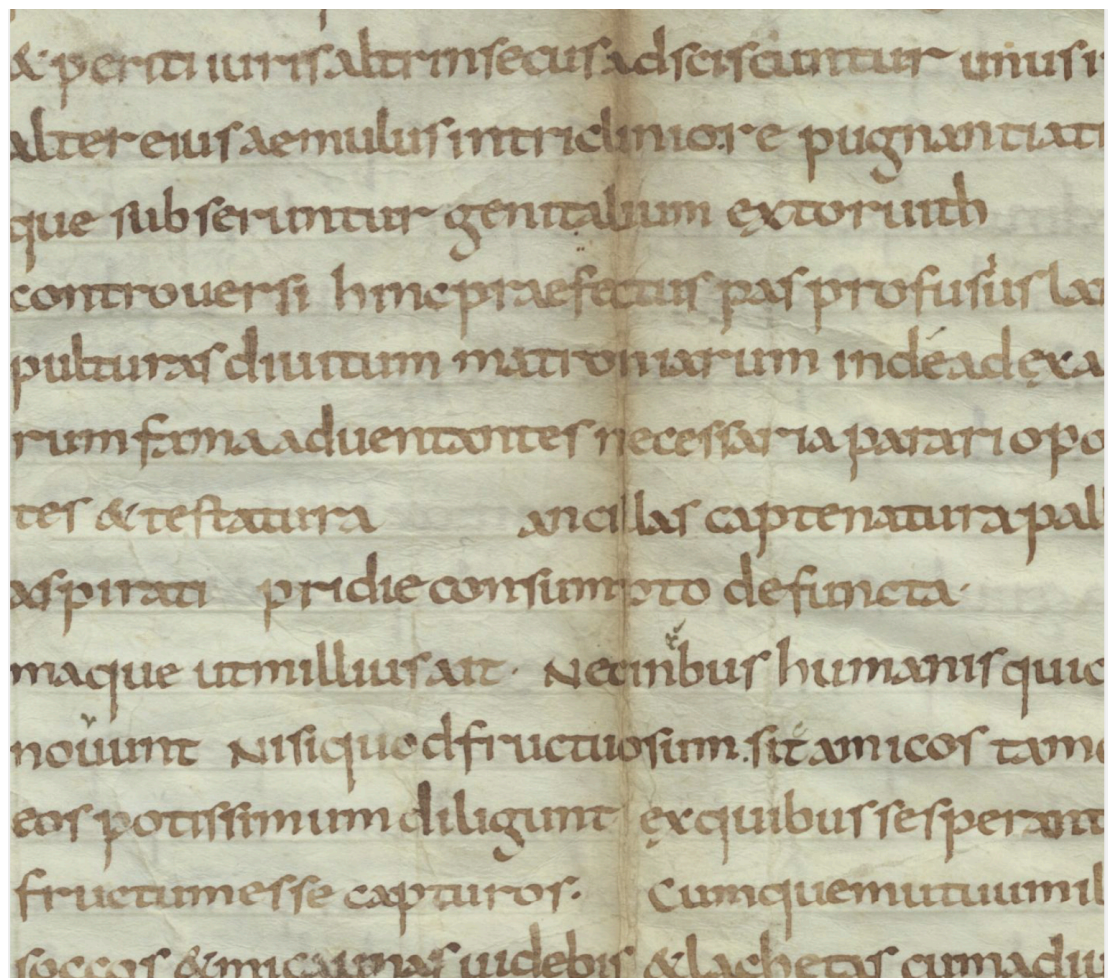 & periti iuris altrinsecus adsciscuntur unius
alter eius aemulus intriclinio.re pugnantia
que subseruntur genitalium extoruith
controuersi hinc praefectus pas profusius
pulturas diuitum matronarum inde ad exa
rum fama aduentantes necessaria parari opo
tes & testatura ancillas captenatura pall
aspirati pridie consumpto defuncta·
maque ut millius ait· Nec in bus humanis quic
nouunt Nisi quod fructuosum. sit amicos tam
eos potissimum diligunt ex quibus se sperant
fructum esse capturos· Cumque mutuum il
soccos & uidebis & lachetas cum adu